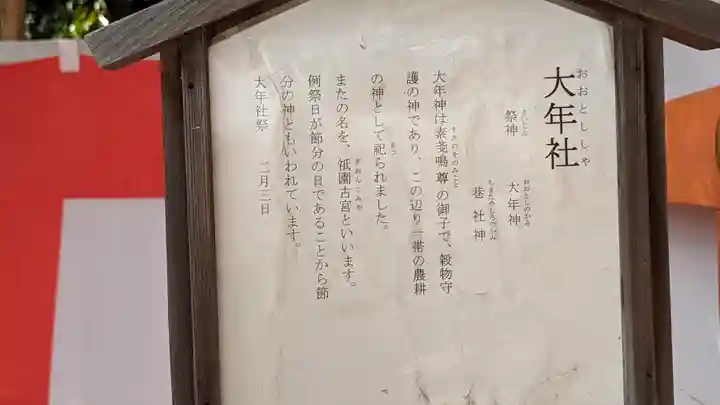 大年社
おおとししゃ
祭神
さいじん
大年神
おおとしのかみ
巷社神
大年神は素戔嗚尊の御子で、穀物守
すさのをのみこと
護の神であり、この辺り一帯の農耕
の神として祀られました。
まつ
またの名を、祇園古宮といいます。
ぎおんこみや
例祭日が節分の日であることから節
分の神ともいわれています。
大年社祭　二月三日